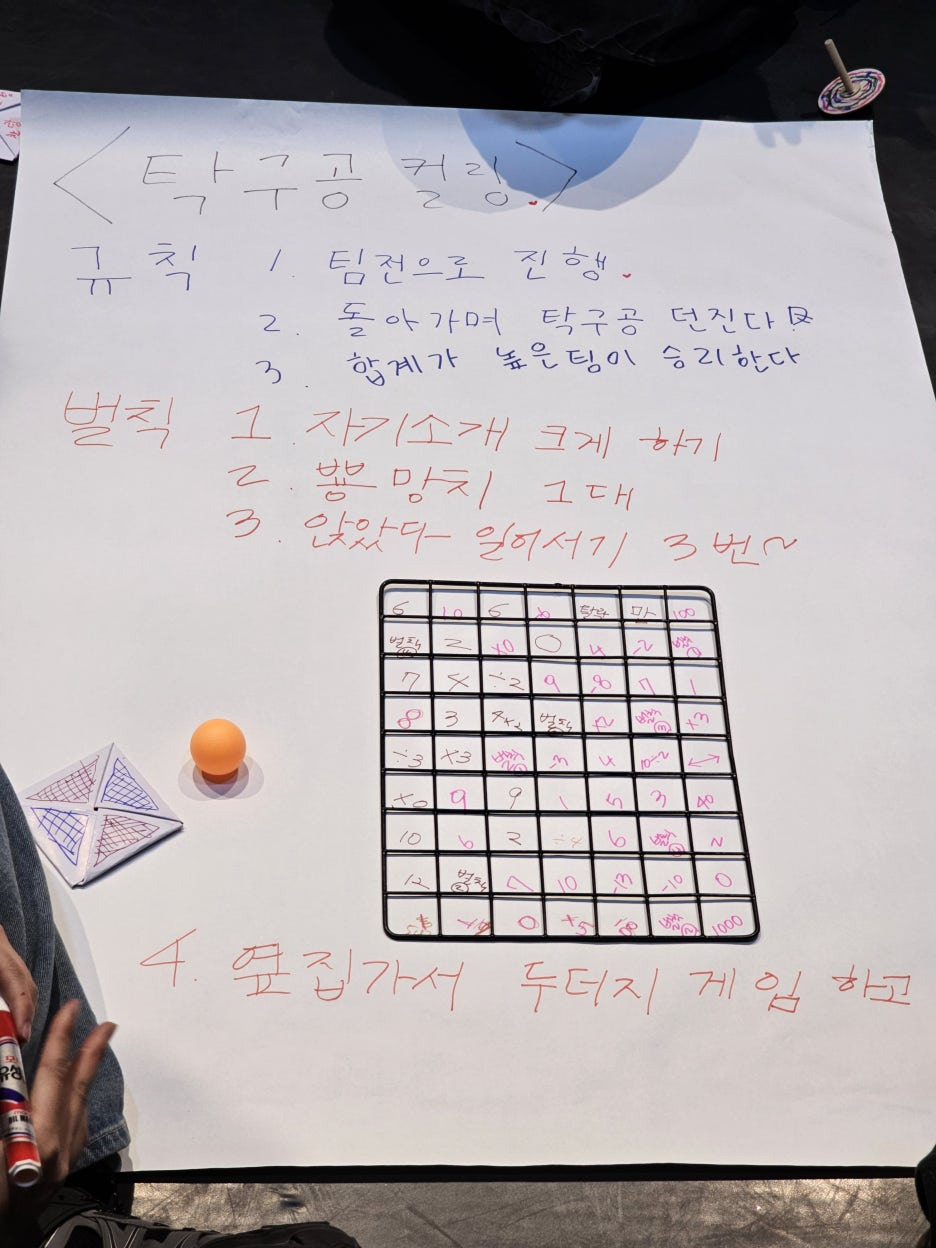 <탁구공 컬링.>
규칙 1. 팀전으로 진행.
2. 돌아가며 탁구공 던진다
3. 합계가 높은팀이 승리한다
벌칙 1 자기소개 크게 하기
2. 뿅망치 1대
3. 앉았다 일어서기 3번~
6 10 6 탈락 100
벌칙 2 ×0 0 4 -2 벌칙
7 4 ÷2 9 -8 7 1
8 3 벌칙 ×2 벌칙③ ×3
÷3 ×3 벌칙 -3 4 10÷2 ↔
×0 9 9 1 5 3 40
10 6 2 ÷4 6 벌칙 2
12 벌칙② 7 10 -3 -10 0
0 ×5 벌칙 1000
4. 옆집가서 두더지 게임 하고
유성